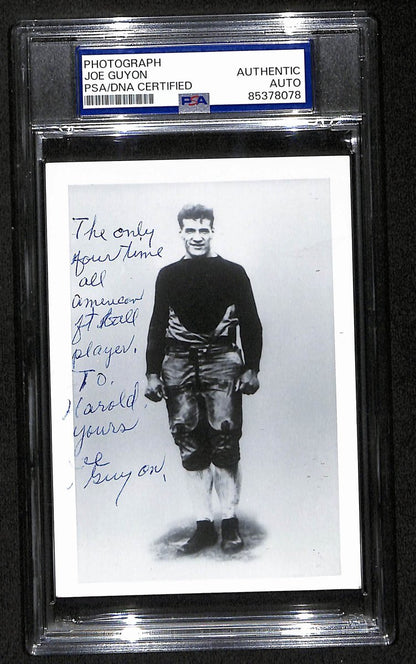 PHOTOGRAPH
JOE GUYON
PSA/DNA CERTIFIED
AUTHENTIC
AUTO
85378078
PSA
The only
four time
all
american
ft ball
player.
To.
Harold.
yours
Joe
Guyon.